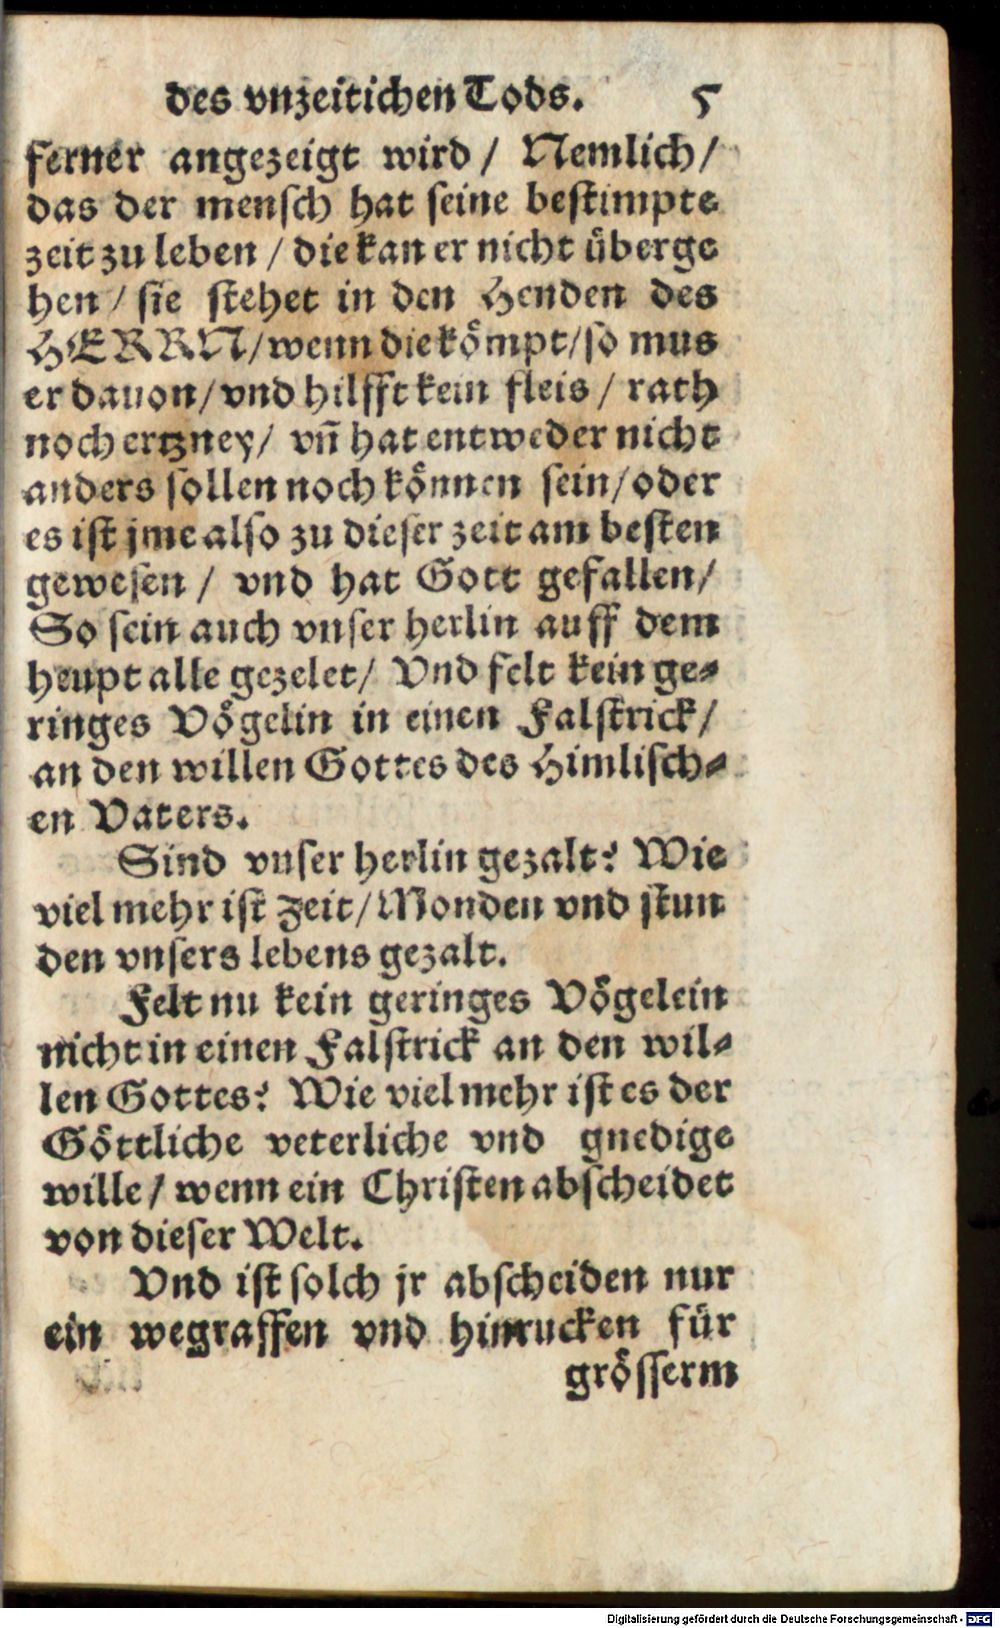 des vnzeitichen Tods. 5
ferner angezeigt wird / Nemlich /
das der mensch hat seine bestimpte
zeit zu leben / die kan er nicht überge
hen / sie stehet in den Henden des
HERRN / wenn die kömpt / so mus
er dauon / vnd hilfft kein fleis / rath
noch ertzney / vn̄ hat entweder nicht
anders sollen noch können sein / oder
es ist jme also zu dieser zeit am besten
gewesen / vnd hat Gott gefallen /
So sein auch vnser herlin auff dem
heupt alle gezelet / Vnd felt kein ge-
ringes Vögelin in einen Falstrick /
an den willen Gottes des Himlisch-
en Vaters.
Sind vnser herlin gezalt? Wie
viel mehr ist zeit / Monden vnd stun
den vnsers lebens gezalt.
Felt nu kein geringes Vögelein
nicht in einen Falstrick an den wil-
len Gottes? Wie viel mehr ist es der
Göttliche veterliche vnd gnedige
wille / wenn ein Christen abscheidet
von dieser Welt.
Vnd ist solch jr abscheiden nur
ein wegraffen vnd hinrucken für
grösserm
Digitalisierung gefördert durch die Deutsche Forschungsgemeinschaft - DFG